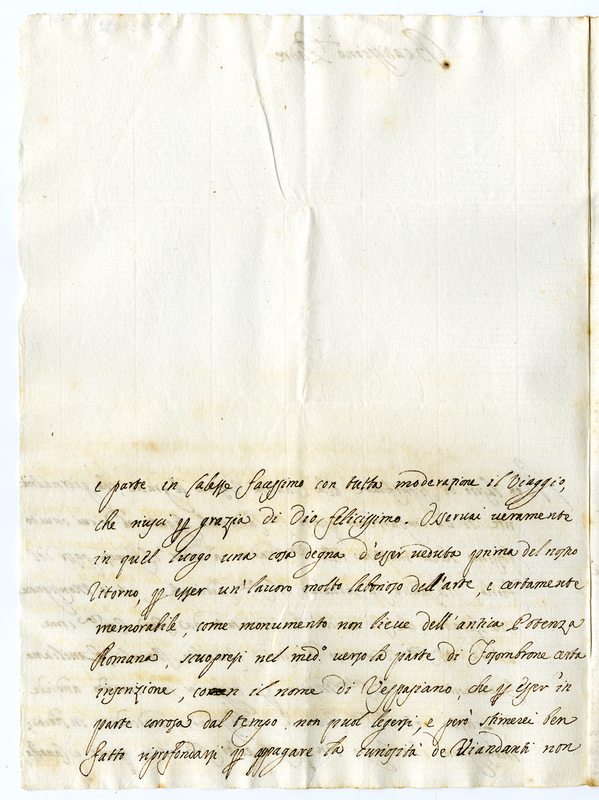 e parte in Calesse facessimo con tutta moderazione il Viaggio,
che riuscì p grazia di Dio felicissimo. Osservai veramente
in quel luogo una cosa degna d'esser veduta prima del nostro
ritorno, p esser un' lavoro molto laborioso dell'arte, e certamente
memorabile, come monumento non lieve dell'antica Potenza
Romana, scuopresi nel med.º verso la parte di Fosombrone certa
inscrizione, con il nome di Vespasiano, che p esser in
parte corrosa dal tempo non puol legersi, e però stimerei ben
fatto riprofondarsi p appagare la curiosità de Viandanti non